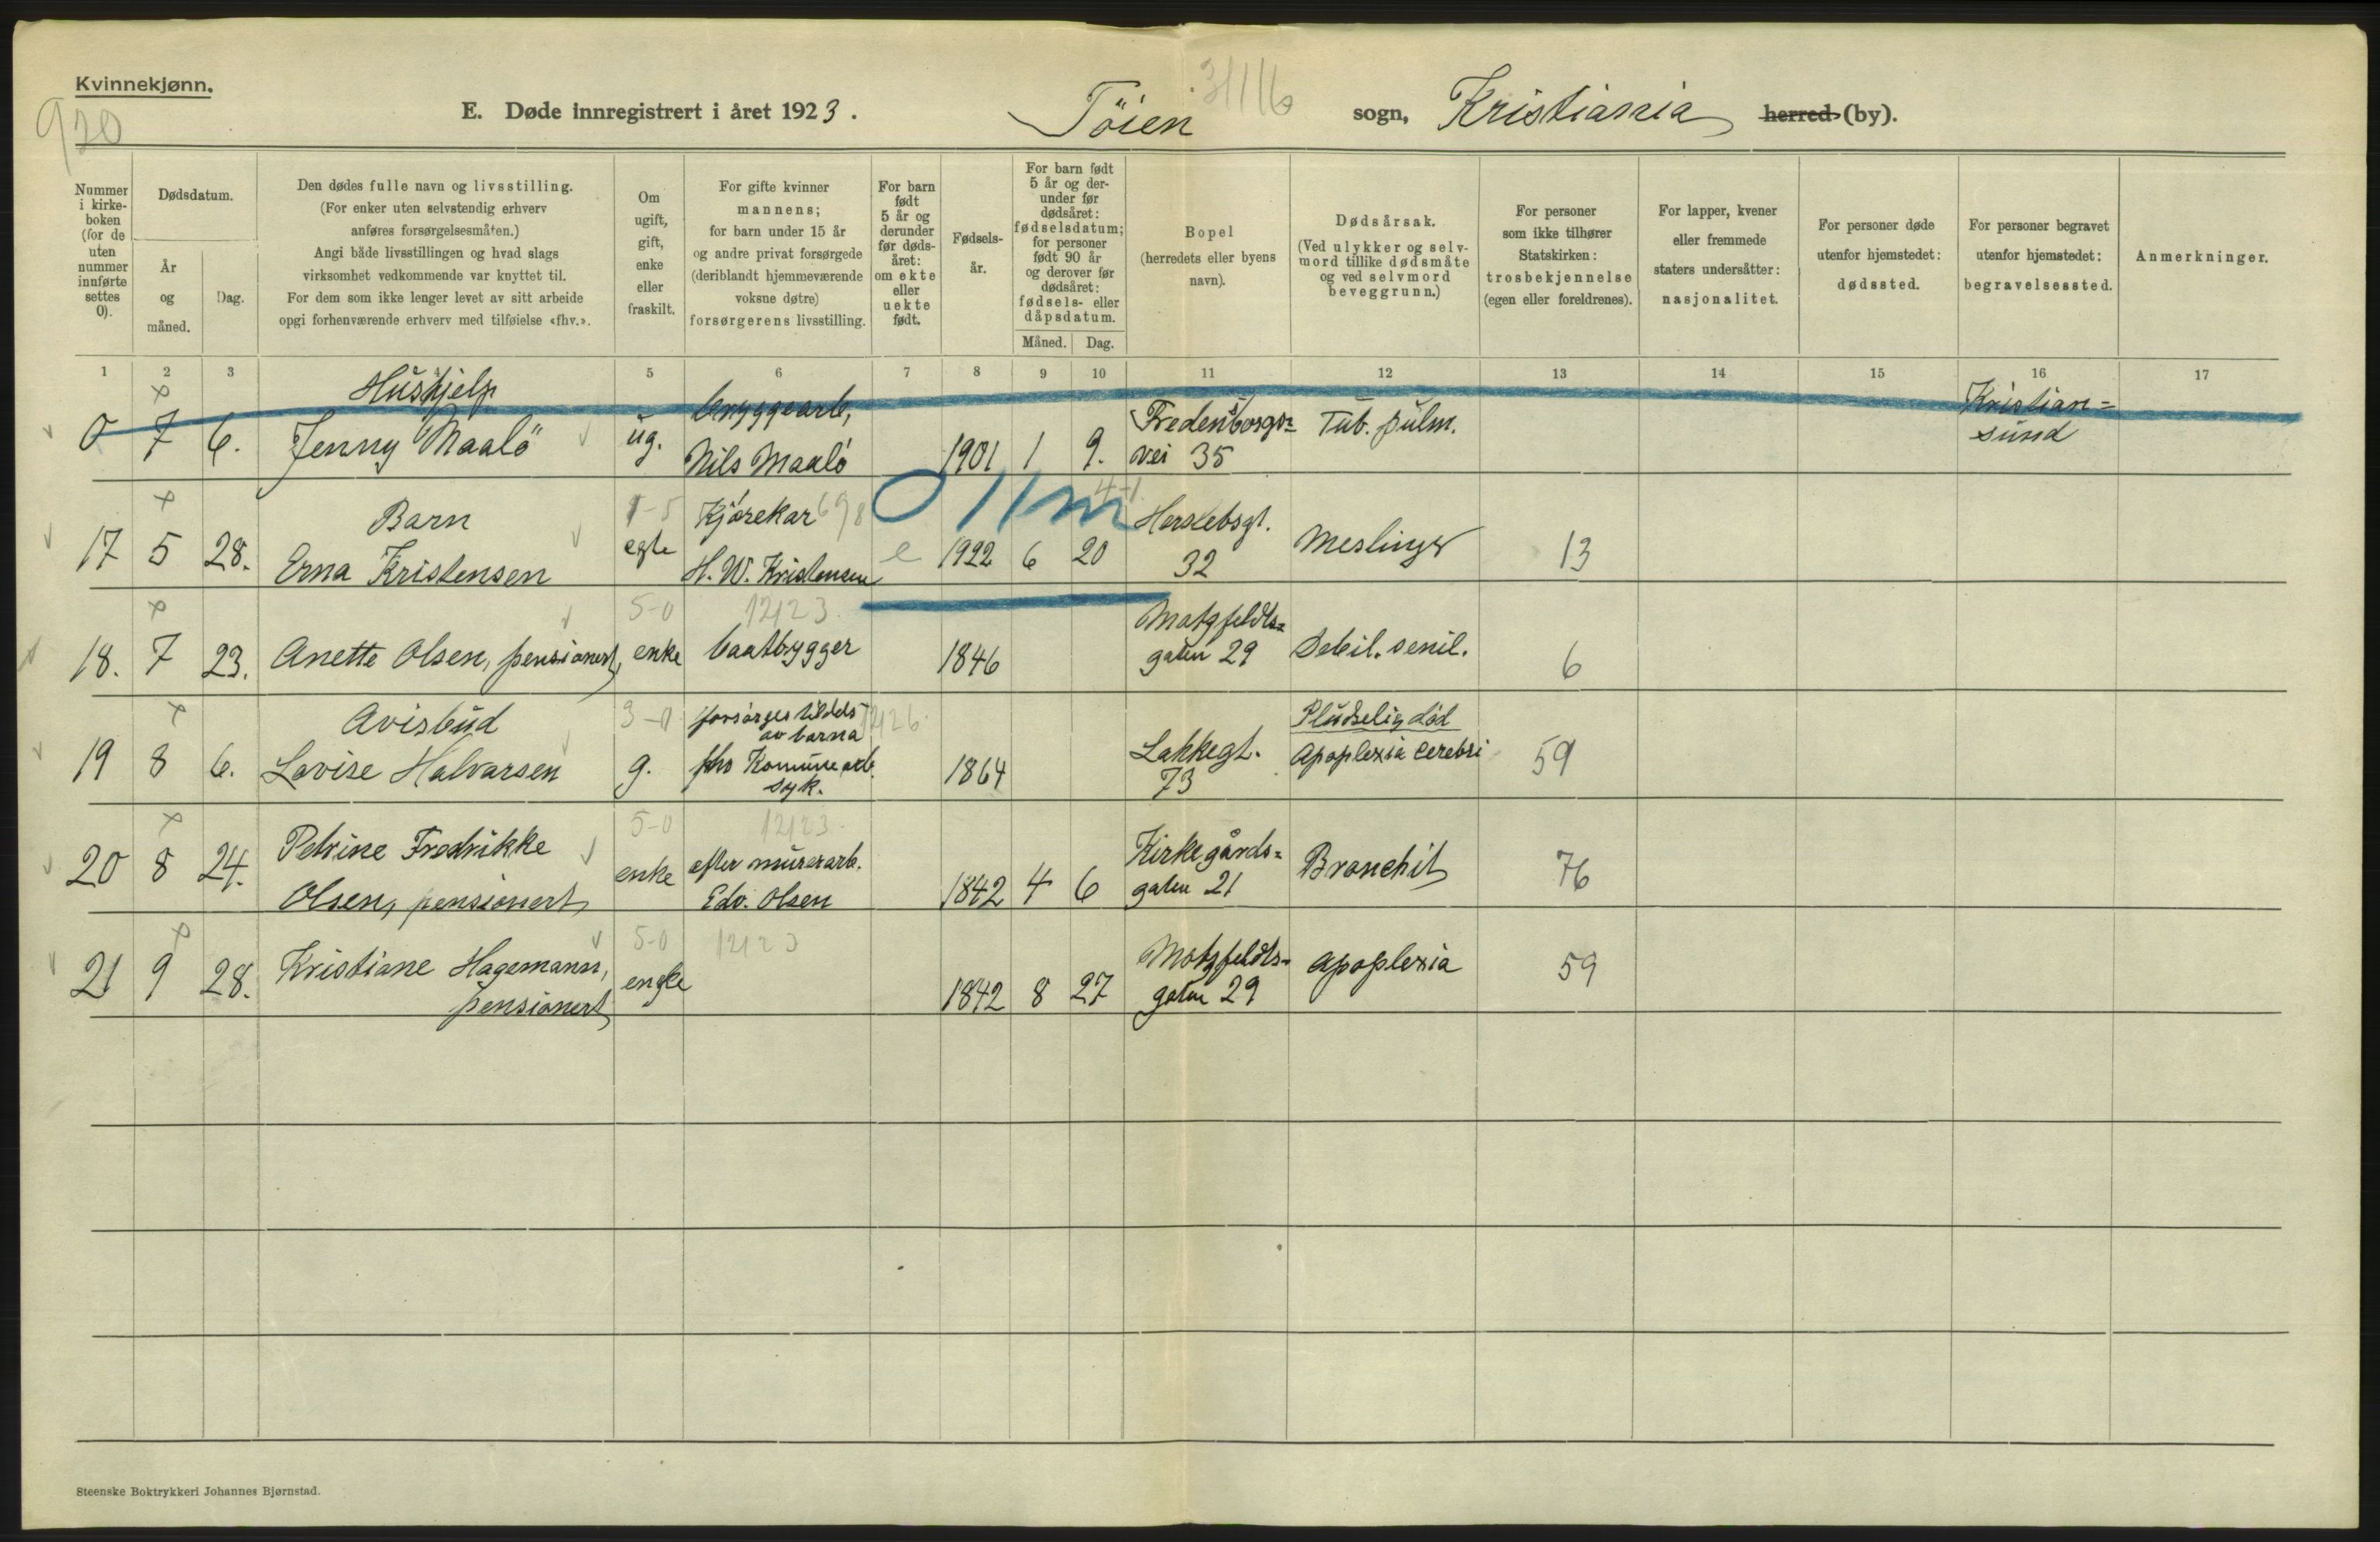 Kvinnekjønn.
920
E. Døde innregistrert i året 1923.
Töien
sogn, Kristiania herred (by).
Nummer i kirkeboken (for de uten nummer innførte settes 0).
Dødsdatum.
År og måned.
Dag.
Den dødes fulle navn og livsstilling.
(For enker uten selvstendig erhverv
anføres forsørgelsesmåten.)
Angi både livsstillingen og hvad slags
virksomhet vedkommende var knyttet til.
For dem som ikke lenger levet av sitt arbeide
opgi forhenværende erhverv med tilføielse «fhv.».
Om
ugift,
gift,
enke
eller
fraskilt.
For gifte kvinner
mannens;
for barn under 15 år
og andre privat forsørgede
(deriblandt hjemmeværende
voksne døtre)
forsørgerens livsstilling.
For barn
født
5 år og
derunder
før døds-
året:
om ekte
eller
uekte
født.
Fødsels-
år.
For barn født
5 år og der-
under før
dødsåret:
fødselsdatum;
for personer
født 90 år
og derover før
dødsåret:
fødsels- eller
dåpsdatum.
Måned. Dag.
Bopel
(herredets eller byens
navn).
Dødsårsak.
(Ved ulykker og selv-
mord tillike dødsmåte
og ved selvmord
beveggrunn.)
For personer
som ikke tilhører
Statskirken:
trosbekjennelse
(egen eller foreldrenes).
For lapper, kvener
eller fremmede
staters undersåtter:
nasjonalitet.
For personer døde
utenfor hjemstedet:
dødssted.
For personer begravet
utenfor hjemstedet:
begravelsessted.
Anmerkninger.
1 2 3 4 5 6 7 8 9 10 11 12 13 14 15 16 17
Hushjelp bryggearb, Fredensborgs= Tub. pulm. Kristian=
0 7 6. Jenny Maalö ug. Nils Maalö 1901 1 9. vei 35 sund
Barn 1-5 Kjørekar 698 4-1 Herslebsgt.
17 5 28. Erna Kristensen egte H. W. Kristensen e 1922 6 20 32 Meslinger 13
5-0 12123 Motzfeldts=
18. 7 23. Anette Olsen, pensionert, enke baatbygger 1846 gaten 29 Debil. senil. 6
Avisbud 3-0 forsörges tildels av barna 12126 Pludselig död
19 8 6. Lovise Halvarsen g. fhv Komune arb. syk. 1864 Lakkegt. 73 Apoplexia cerebri 59
5-0 12123
20 8 24. Petrine Fredrikke enke efter murerarb. Kirkegårds= Bronchit 76
Olsen, pensionert, Edv. Olsen 1842 4 6 gaten 21
5-0 12123
21 9 28. Kristiane Hagemann, enke Motzfeldts= Apoplexia 59
pensionert 1842 8 27 gaten 29
Steenske Boktrykkeri Johannes Bjørnstad.